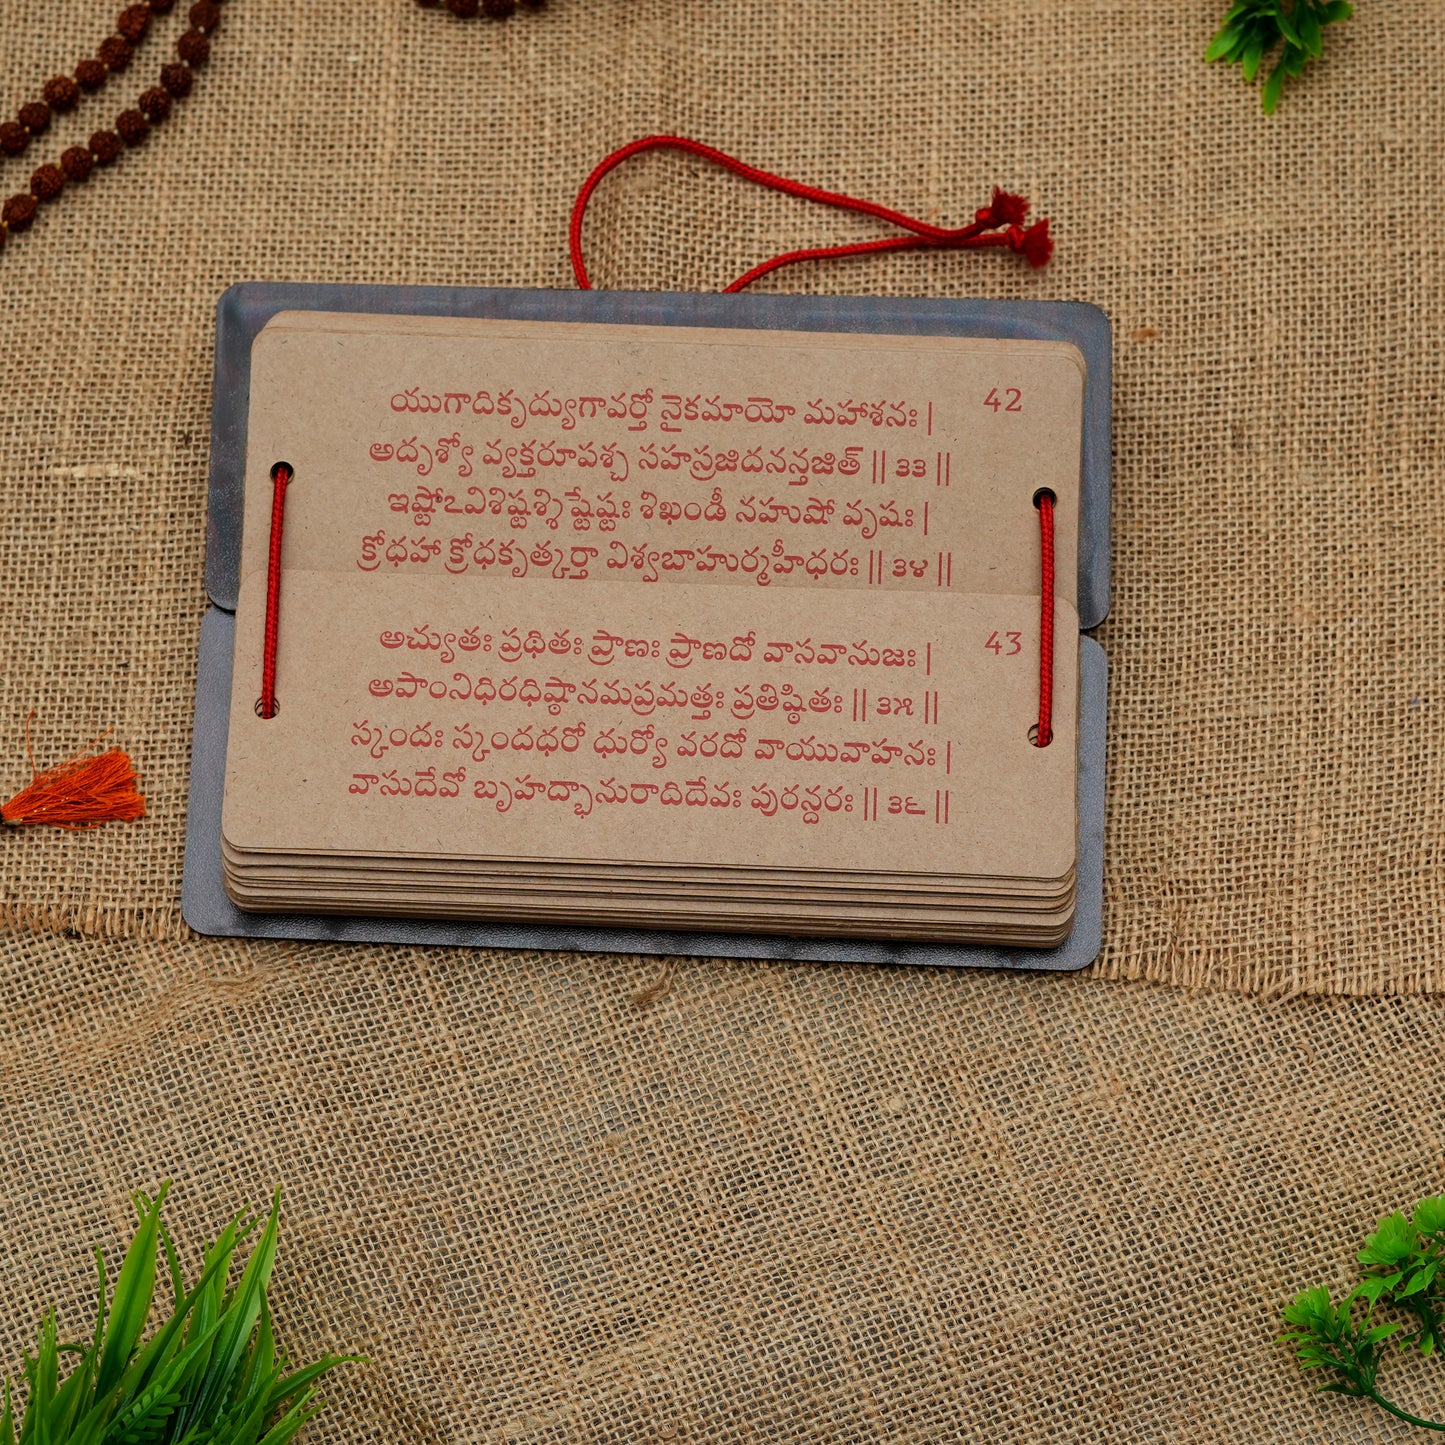 42
యుగాదికృద్యుగావర్తో నైకమాయో మహాశనః |
అదృశ్యో వ్యక్తరూపశ్చ సహస్రజిదనన్తజిత్ || ౩౩ ||
ఇష్టోఽవిశిష్టశ్శిష్టేష్టః శిఖండీ నహుషో వృషః |
క్రోధహా క్రోధకృత్కర్తా విశ్వబాహుర్మహీధరః || ౩౪ ||
43
అచ్యుతః ప్రథితః ప్రాణః ప్రాణదో వాసవానుజః |
అపాంనిధిరధిష్ఠానమప్రమత్తః ప్రతిష్ఠితః || ౩౫ ||
స్కందః స్కందధరో ధుర్యో వరదో వాయువాహనః |
వాసుదేవో బృహద్భానురాదిదేవః పురన్దరః || ౩౬ ||